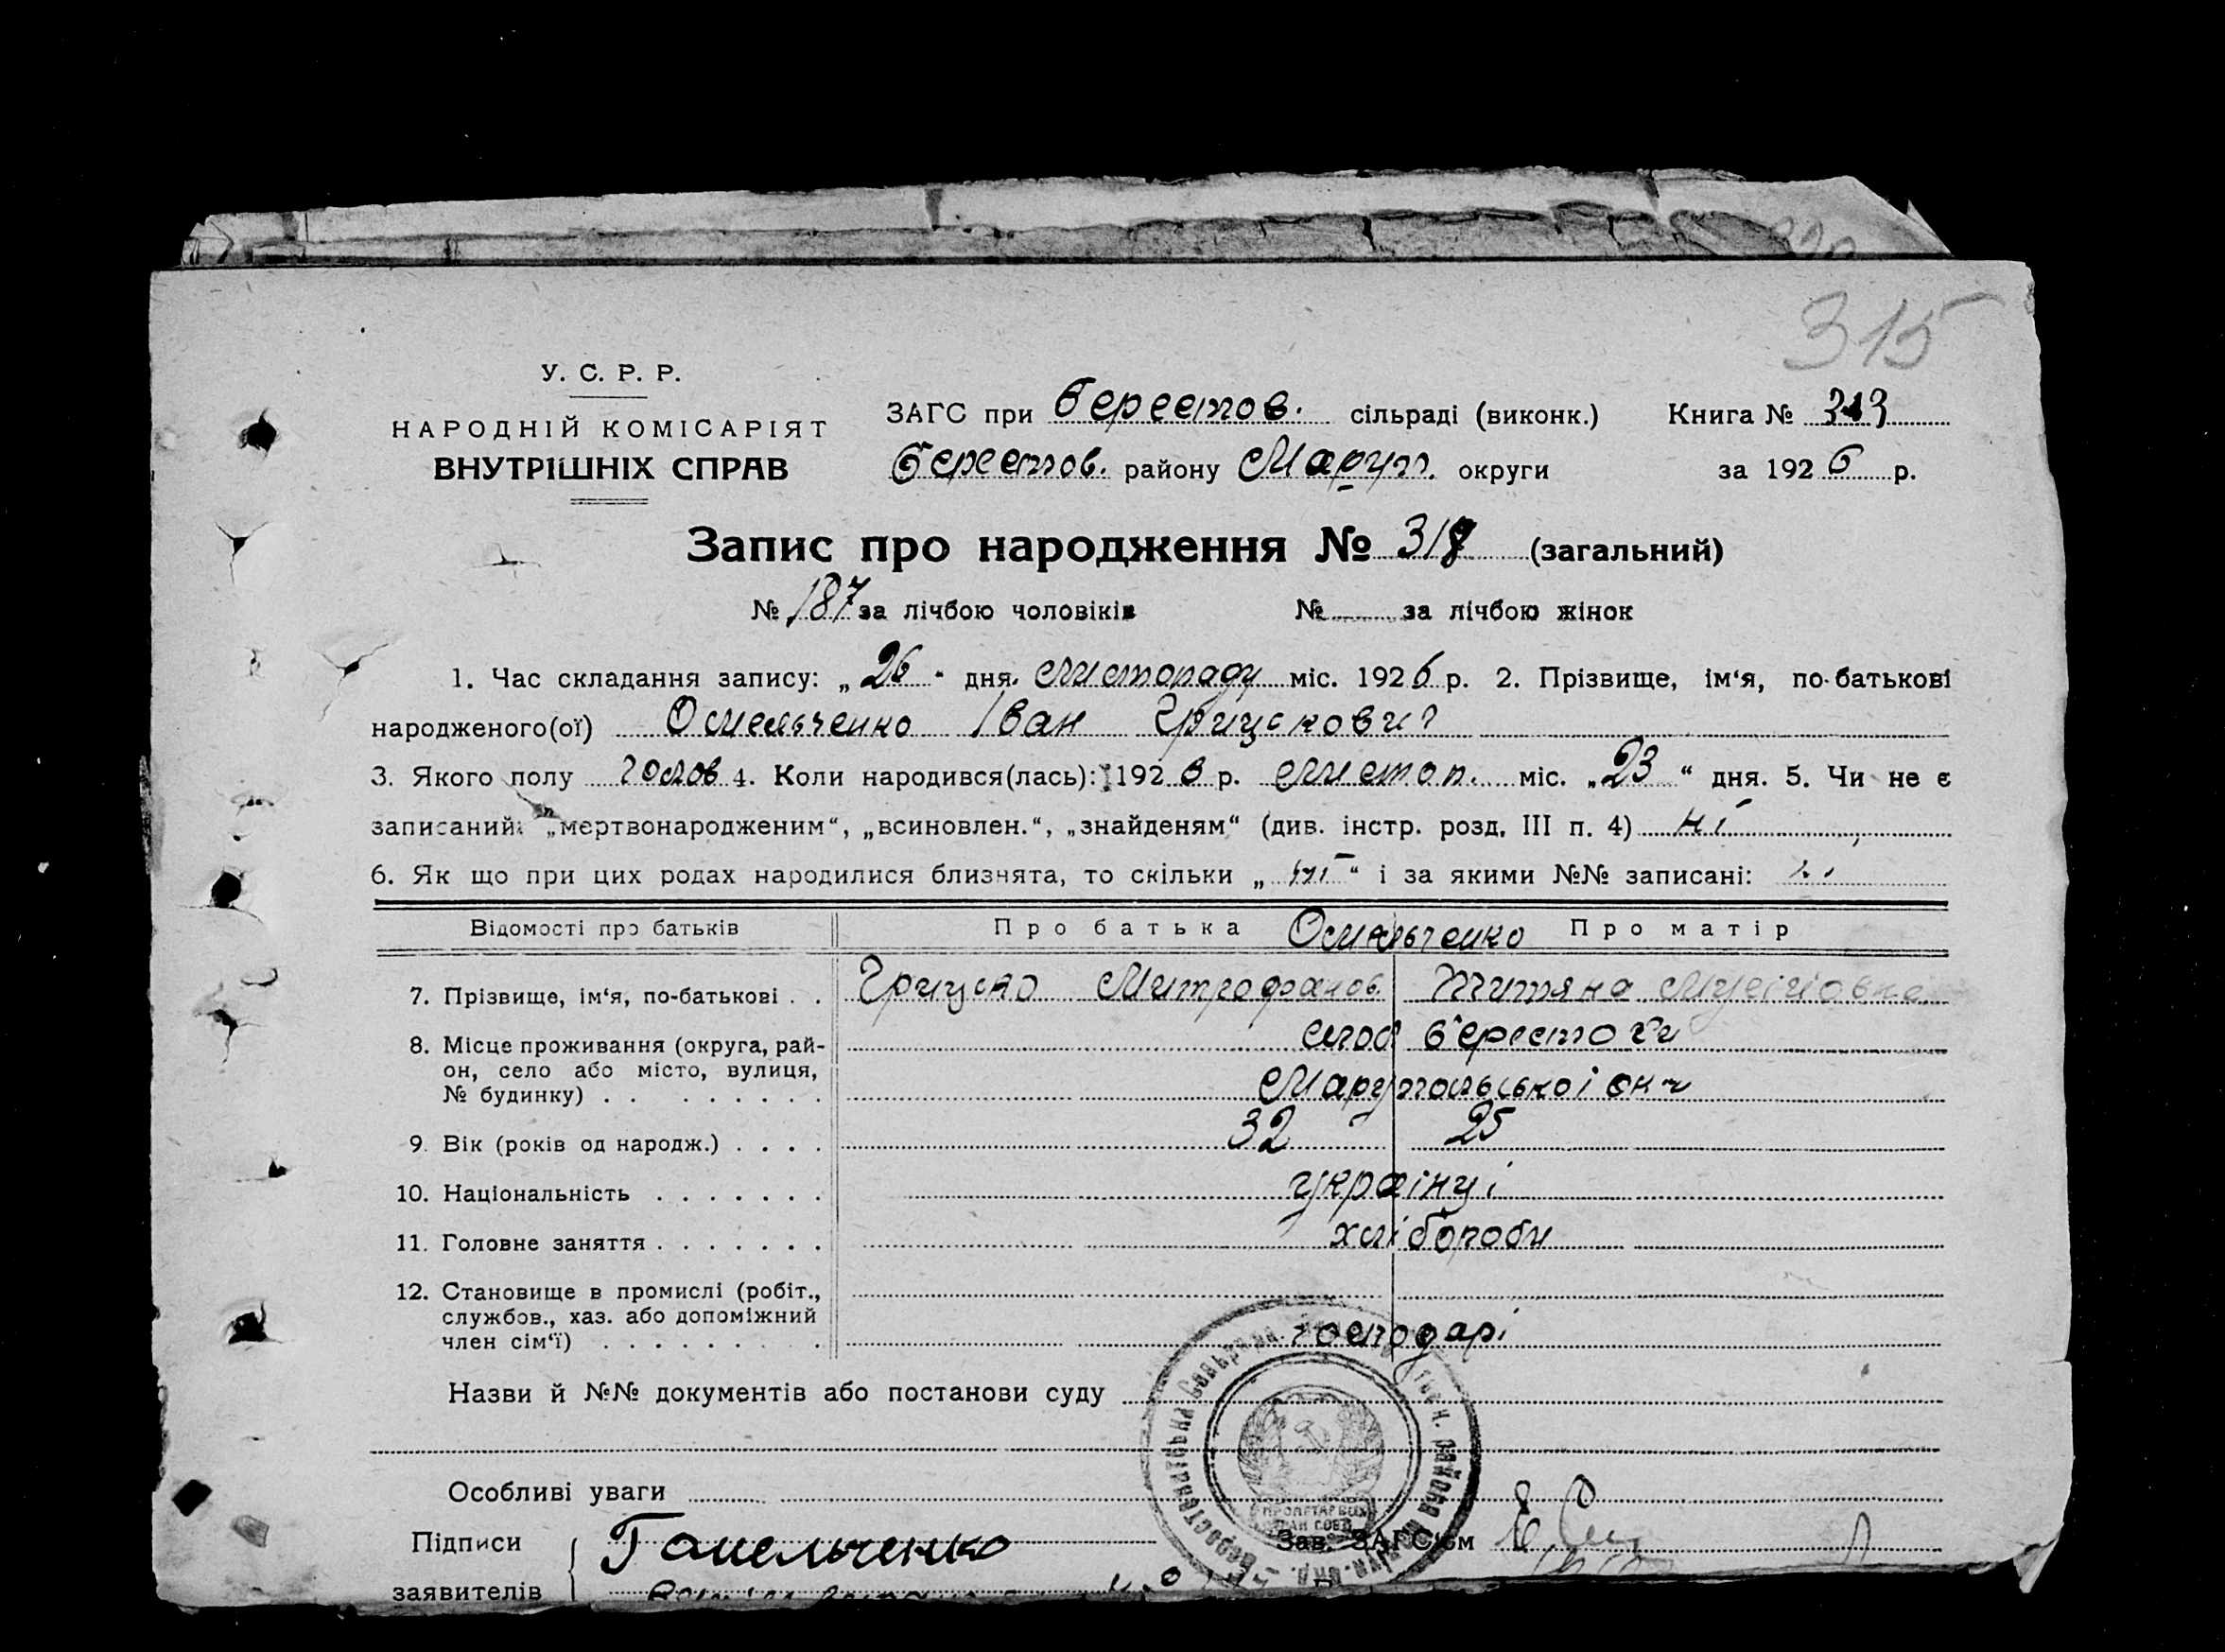 315
У. С. Р. Р.
НАРОДНІЙ КОМІСАРІЯТ
ВНУТРІШНІХ СПРАВ
ЗАГС при Берестов. сільраді (виконк.) Книга №
Берестов. району Маруп. округи за 1926 р.
Запис про народження № 318 (загальний)
№ 187 за лічбою чоловіків № за лічбою жінок
1. Час складання запису: „26“ дня. листопаду міс. 1926 р. 2. Прізвище, ім‘я, по-батькові
народженого(ої) Омельченко Іван Грицькович
3. Якого полу чолов 4. Коли народився(лась): 1926 р. листоп. міс. „23“ дня. 5. Чи не є
записаний: „мертвонародженим“, „всиновлен.“, „знайденям“ (див. інстр. розд. III п. 4) ні
6. Як що при цих родах народилися близнята, то скільки „ні“ і за якими №№ записані:
Відомості про батьків Про батька Омельченко Про матір
7. Прізвище, ім‘я, по-батькові . . Грицько Митрофанов. Титяна Мусіїовна
8. Місце проживання (округа, рай- слоб Берестови
он, село або місто, вулиця,
№ будинку) . . Марупольської окр
9. Вік (років од народж.) . . . . 32 25
10. Національність . . . . . . . українці
11. Головне заняття . . . . . . . хлібороби
12. Становище в промислі (робіт.,
службов., хаз. або допоміжний
член сім‘ї) . . . . . . . . . господарі
Назви й №№ документів або постанови суду
Особливі уваги
Підписи Г Омельченко Зав. ЗАГС‘ом
заявителів